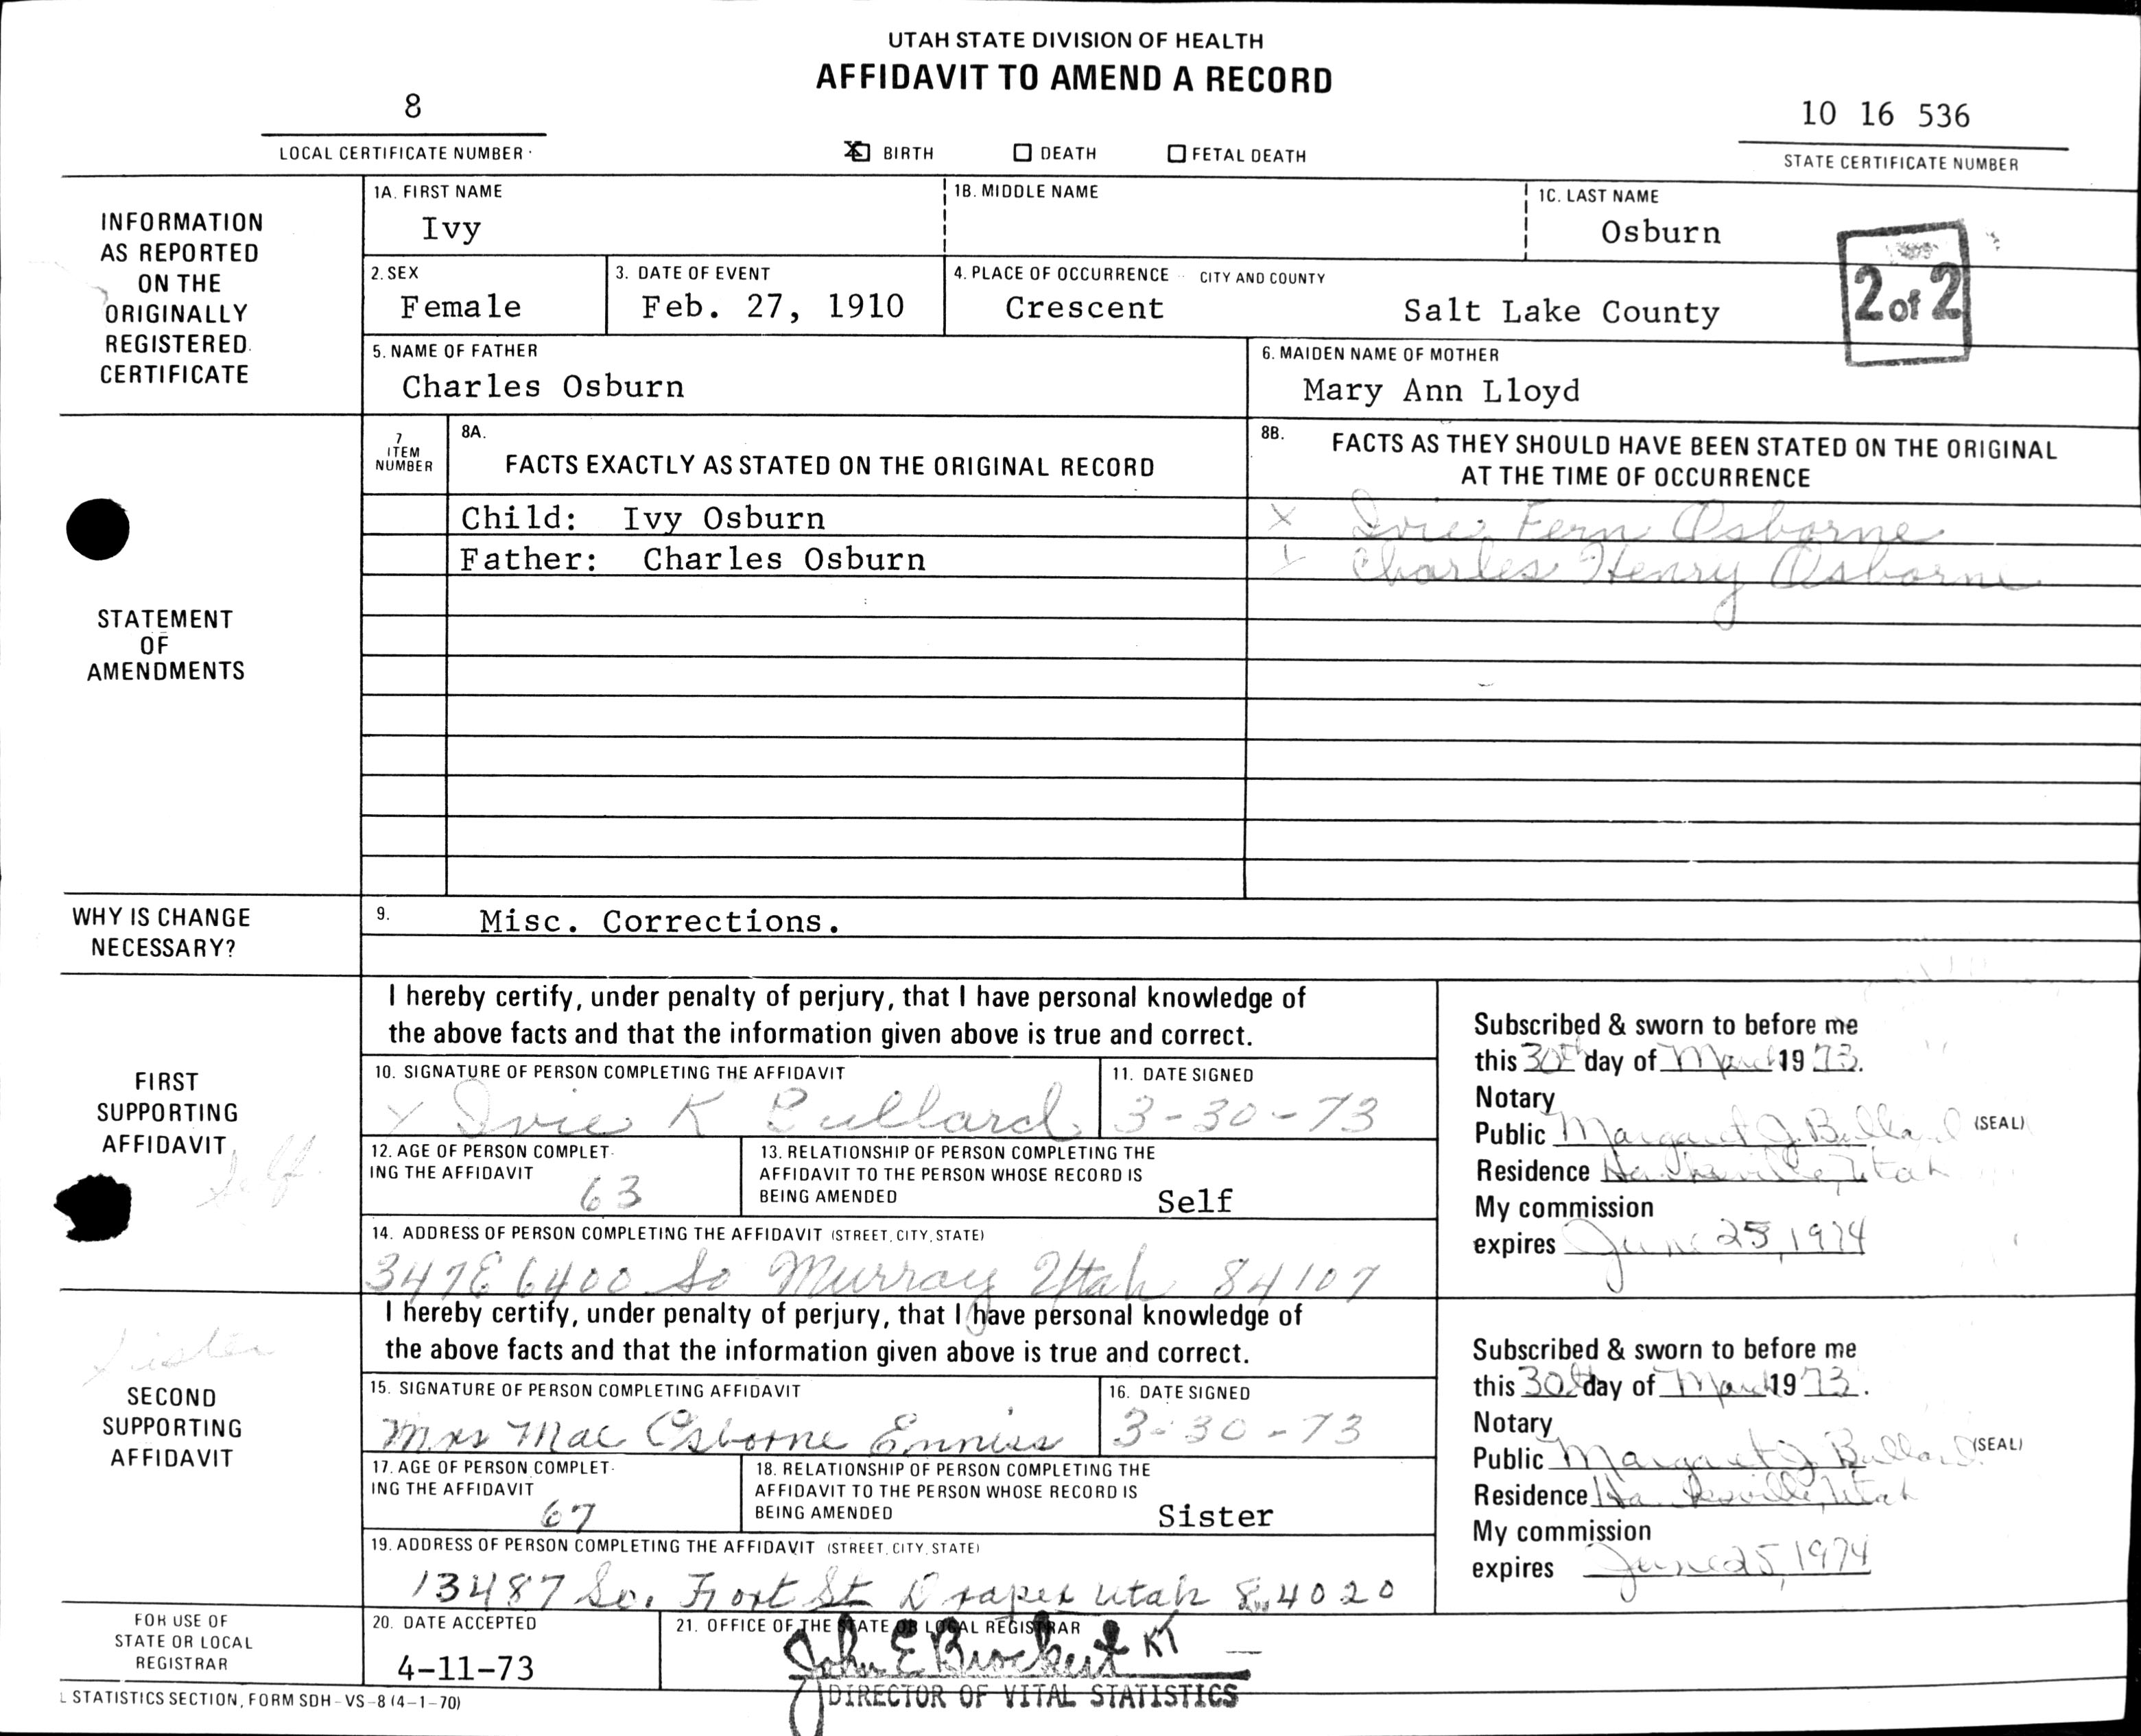 UTAH STATE DIVISION OF HEALTH
AFFIDAVIT TO AMEND A RECORD
8
10 16 536
LOCAL CERTIFICATE NUMBER
X BIRTH DEATH FETAL DEATH
STATE CERTIFICATE NUMBER
INFORMATION
AS REPORTED
ON THE
ORIGINALLY
REGISTERED
CERTIFICATE
1A. FIRST NAME
Ivy
1B. MIDDLE NAME
1C. LAST NAME
Osburn
2. SEX
Female
3. DATE OF EVENT
Feb. 27, 1910
4. PLACE OF OCCURRENCE CITY AND COUNTY
Crescent Salt Lake County
2 of 2
5. NAME OF FATHER
Charles Osburn
6. MAIDEN NAME OF MOTHER
Mary Ann Lloyd
STATEMENT
OF
AMENDMENTS
7
ITEM
NUMBER
8A.
FACTS EXACTLY AS STATED ON THE ORIGINAL RECORD
8B. FACTS AS THEY SHOULD HAVE BEEN STATED ON THE ORIGINAL
AT THE TIME OF OCCURRENCE
Child: Ivy Osburn
X Ivie Fern Osborne
Father: Charles Osburn
X Charles Henry Osborne
WHY IS CHANGE
NECESSARY?
9. Misc. Corrections.
FIRST
SUPPORTING
AFFIDAVIT
Self
I hereby certify, under penalty of perjury, that I have personal knowledge of
the above facts and that the information given above is true and correct.
10. SIGNATURE OF PERSON COMPLETING THE AFFIDAVIT
X Ivie K Bullard
11. DATE SIGNED
3-30-73
12. AGE OF PERSON COMPLET-
ING THE AFFIDAVIT
63
13. RELATIONSHIP OF PERSON COMPLETING THE
AFFIDAVIT TO THE PERSON WHOSE RECORD IS
BEING AMENDED
Self
14. ADDRESS OF PERSON COMPLETING THE AFFIDAVIT (STREET, CITY, STATE)
347 E 6400 So Murray Utah 84107
Subscribed & sworn to before me
this 30th day of March 1973.
Notary
Public Margaret J. Bullard (SEAL)
Residence Utah
My commission
expires June 25, 1974
Sister
SECOND
SUPPORTING
AFFIDAVIT
I hereby certify, under penalty of perjury, that I have personal knowledge of
the above facts and that the information given above is true and correct.
15. SIGNATURE OF PERSON COMPLETING AFFIDAVIT
Mrs Mae Osborne Enniss
16. DATE SIGNED
3-30-73
17. AGE OF PERSON COMPLET-
ING THE AFFIDAVIT
67
18. RELATIONSHIP OF PERSON COMPLETING THE
AFFIDAVIT TO THE PERSON WHOSE RECORD IS
BEING AMENDED
Sister
19. ADDRESS OF PERSON COMPLETING THE AFFIDAVIT (STREET, CITY, STATE)
13487 So. Fort St Draper Utah 84020
Subscribed & sworn to before me
this 30th day of March 1973.
Notary
Public Margaret J. Bullard (SEAL)
Residence Utah
My commission
expires June 25, 1974
FOR USE OF
STATE OR LOCAL
REGISTRAR
20. DATE ACCEPTED
4-11-73
21. OFFICE OF THE STATE OR LOCAL REGISTRAR
John E Brockert KT
DIRECTOR OF VITAL STATISTICS
L STATISTICS SECTION, FORM SDH-VS-8 (4-1-70)